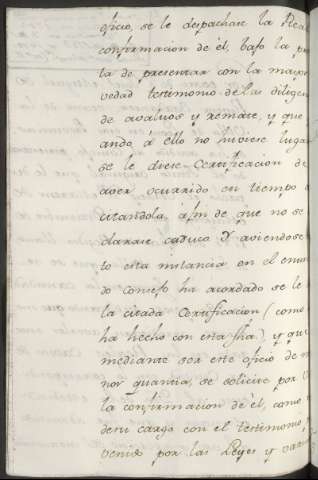 oficio, se le despachase la Rea
confirmacion de él, bajo la pro
ta de presentar con la mayor
vedad testimonio de las diligen
de avaluos y remate, y que
ando á ello no huviere luga
se le diese Certificacion de
aver ocurrido en tiempo
citandola, afin de que no se
clarase caduco Y aviendose
to esta instancia en el enun
do consejo ha acordado se le
la citada Certificacion (como
ha hecho con esta fha), y que
mediante ser este oficio de me
nor quantia, se solicite por V
la confirmacion de él, como
de su cargo con el testimonio,
venido por las Leyes y va